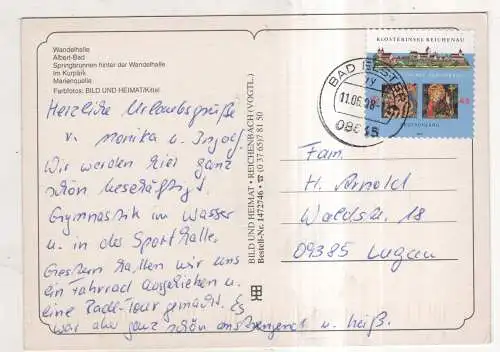 Wandelhalle
Albert-Bad
Springbrunnen hinter der Wandelhalle
Im Kurpark
Marienquelle
Farbfotos: BILD UND HEIMAT/Kittel
Herzliche Urlaubsgrüße
v. Monika u. Ingolf.
Wir werden hier ganz
schön beschäftigt.
Gymnastik im Wasser
u. in der Sporthalle.
Gestern hatten wir uns
ein Fahrrad ausgeliehen u.
eine Rad-Tour gemacht. Es
war aber ganz schön anstrengend u. heiß.
BILD UND HEIMAT • REICHENBACH (VOGTL.)
Bestell-Nr. 1472746 • ☎ (0 37 65) 7 81 50
KLOSTERINSEL REICHENAU
BAD ELSTER
11.06.98
08645
Fam.
H. Arnold
Waldstr. 18
09385 Lugau